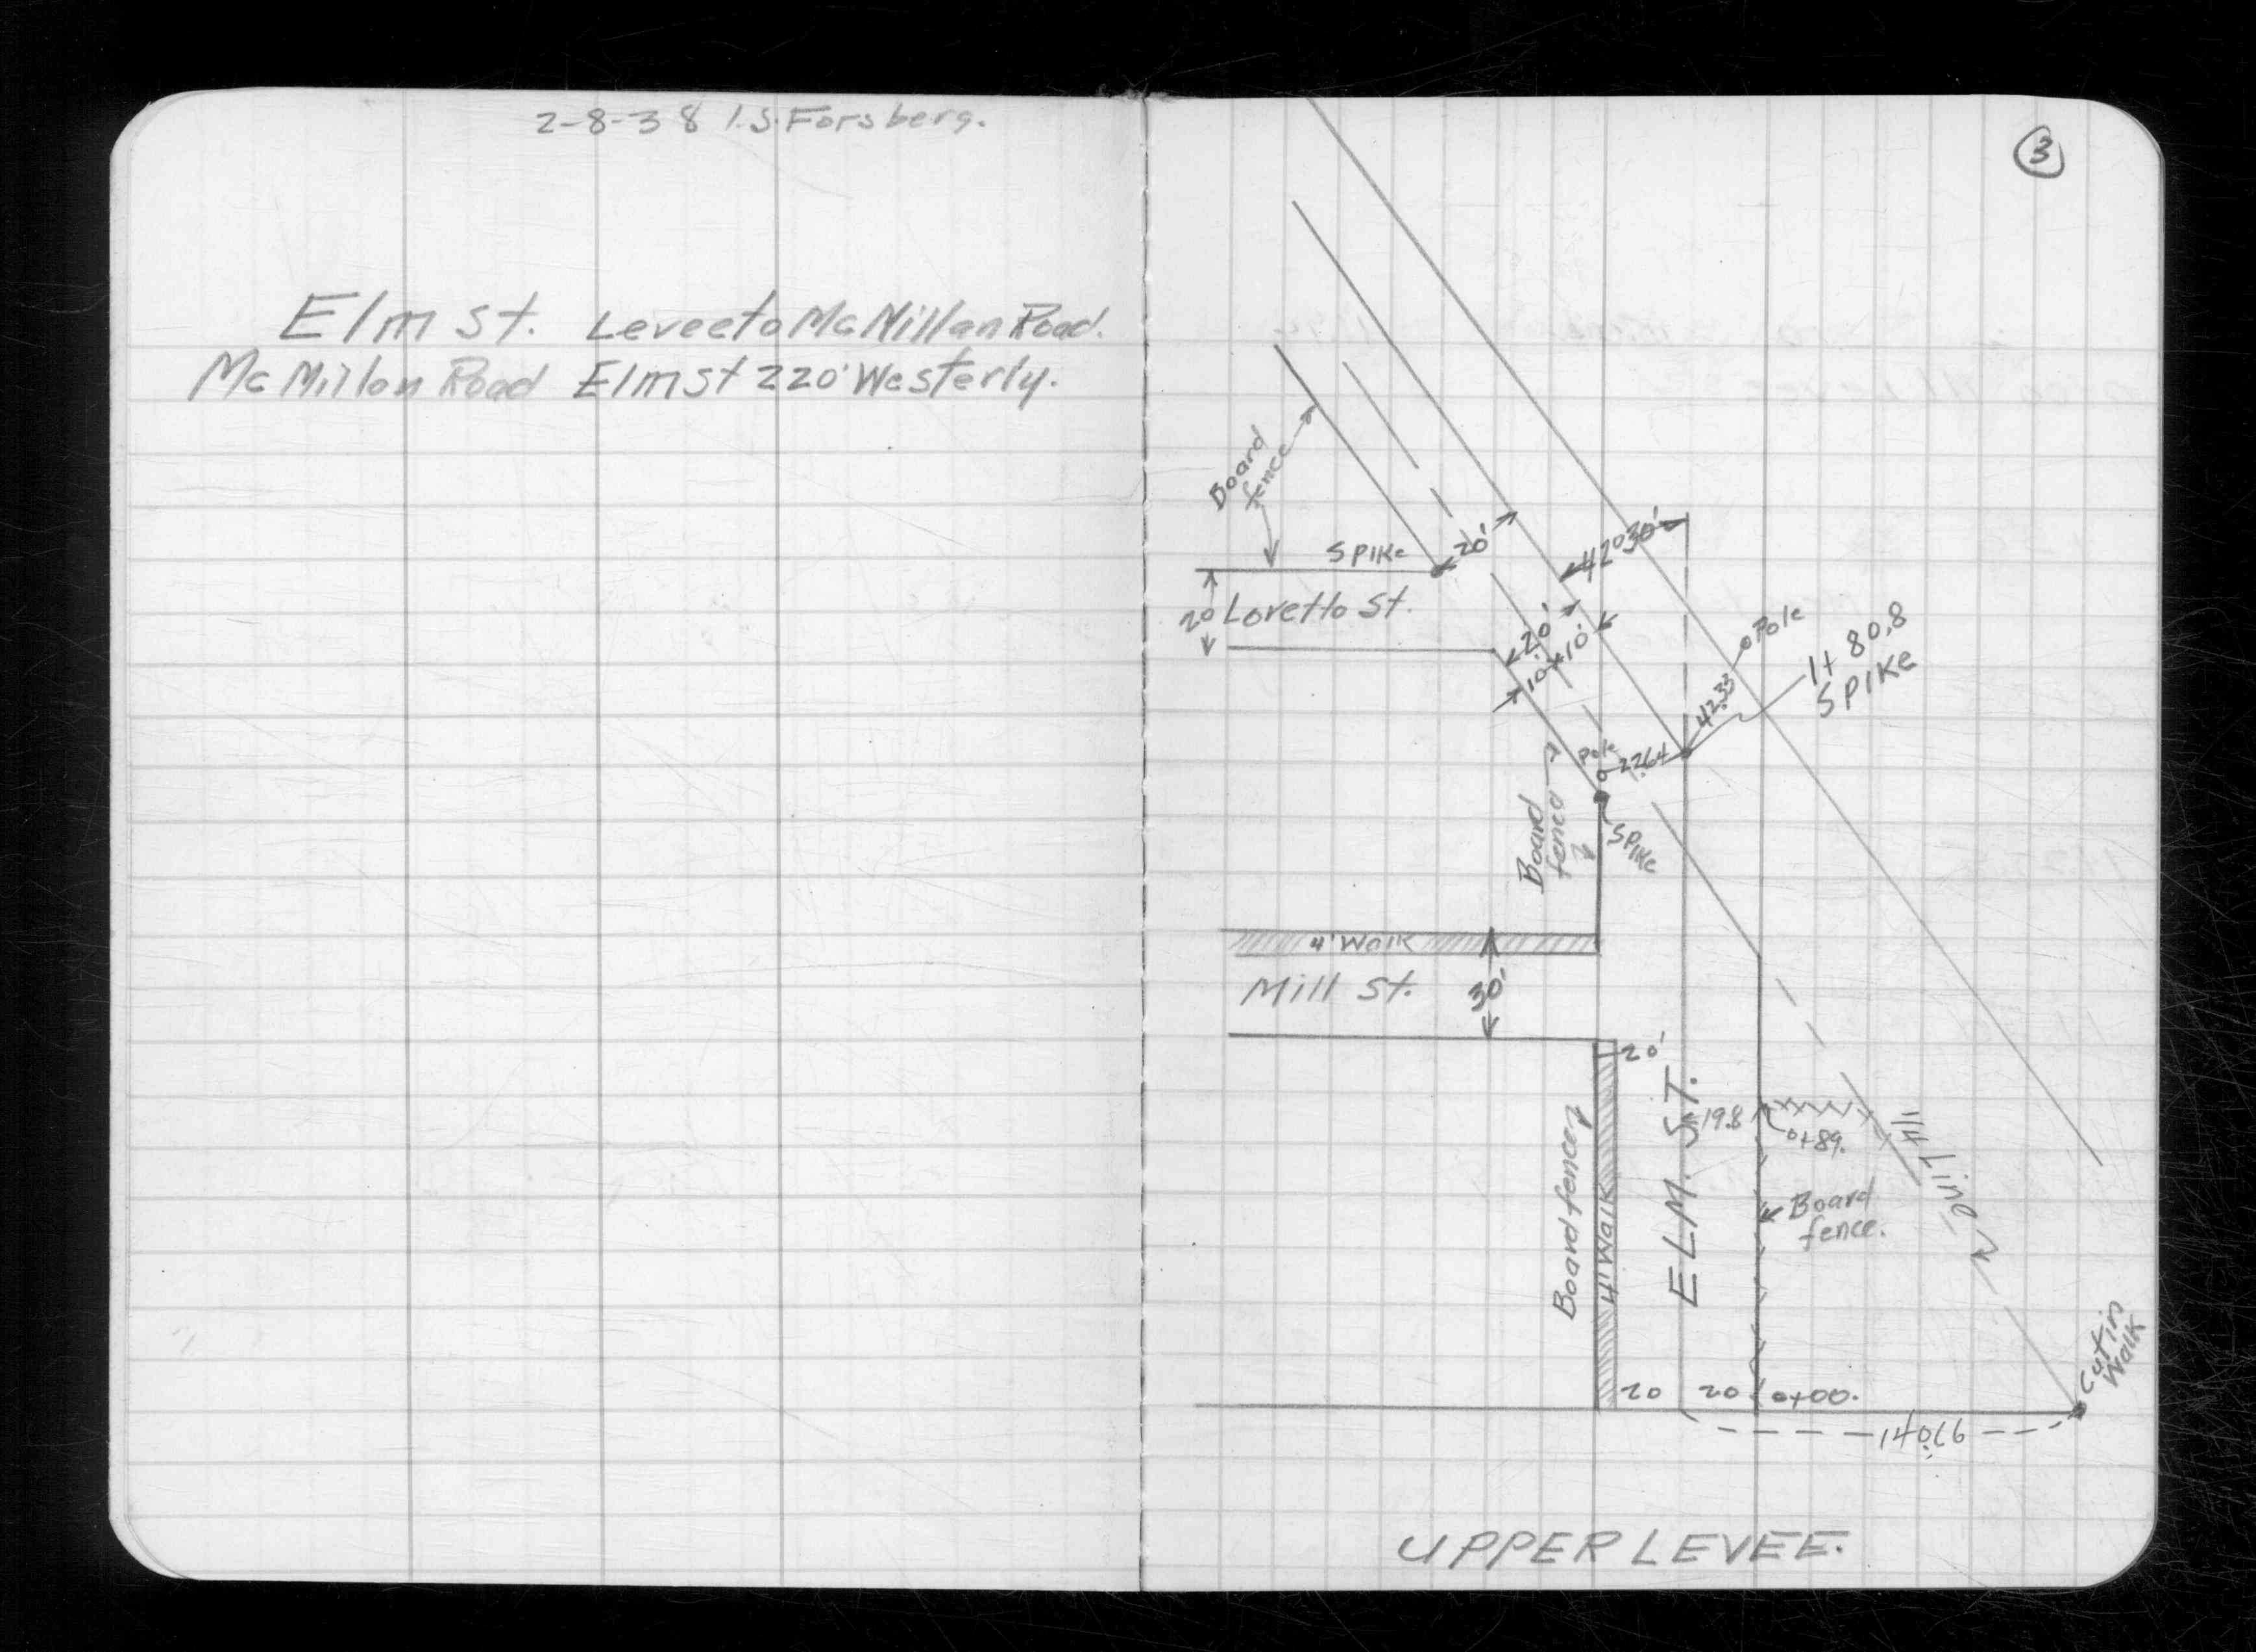 2-8-38 I.S. Forsberg.
Elm St. Levee to McMillan Road.
McMillan Road Elm St 220' Westerly.
3
Board
fence
Spike
20'
42°30'
20
Loretto St.
20'
10'
10'
Pole
1+80.8
Spike
42.33
Pole
22.64
Spike
Board
fence
4' Walk
Mill St.
30'
20'
19.8
0+89.
Line
Board fence
4' Walk
ELM. ST.
Board
fence.
Cut in
Walk
20
20
0+00.
140.66
UPPER LEVEE.